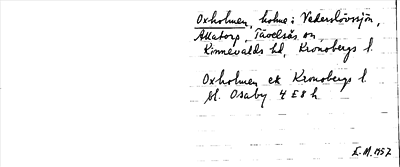 Oxholmen, holme i Vederslövssjön,
Attatorp, Tävelsås sn,
Kinnevalds hd, Kronobergs l.
Oxholmen ek Kronobergs l.
bl. Osaby 4 E 8 h
E.M. 1957